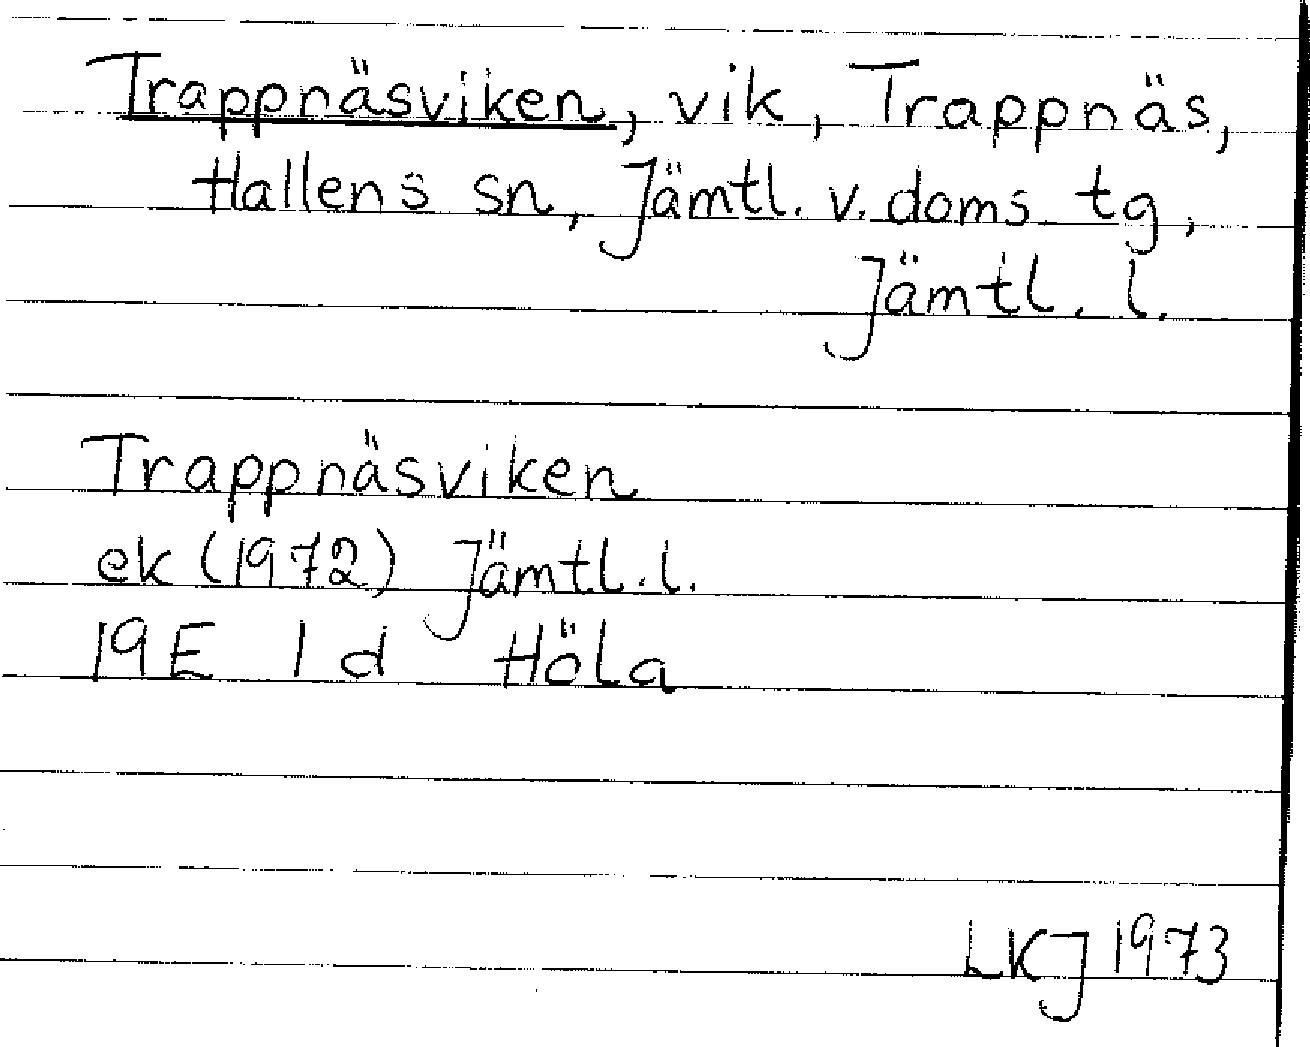 Trappnäsviken, vik, Trappnäs,
Hallens sn, Jämtl. v. doms. tg,
Jämtl. l.
Trappnäsviken
ek (1972) Jämtl. l.
19E 1d Höla
LKJ 1973